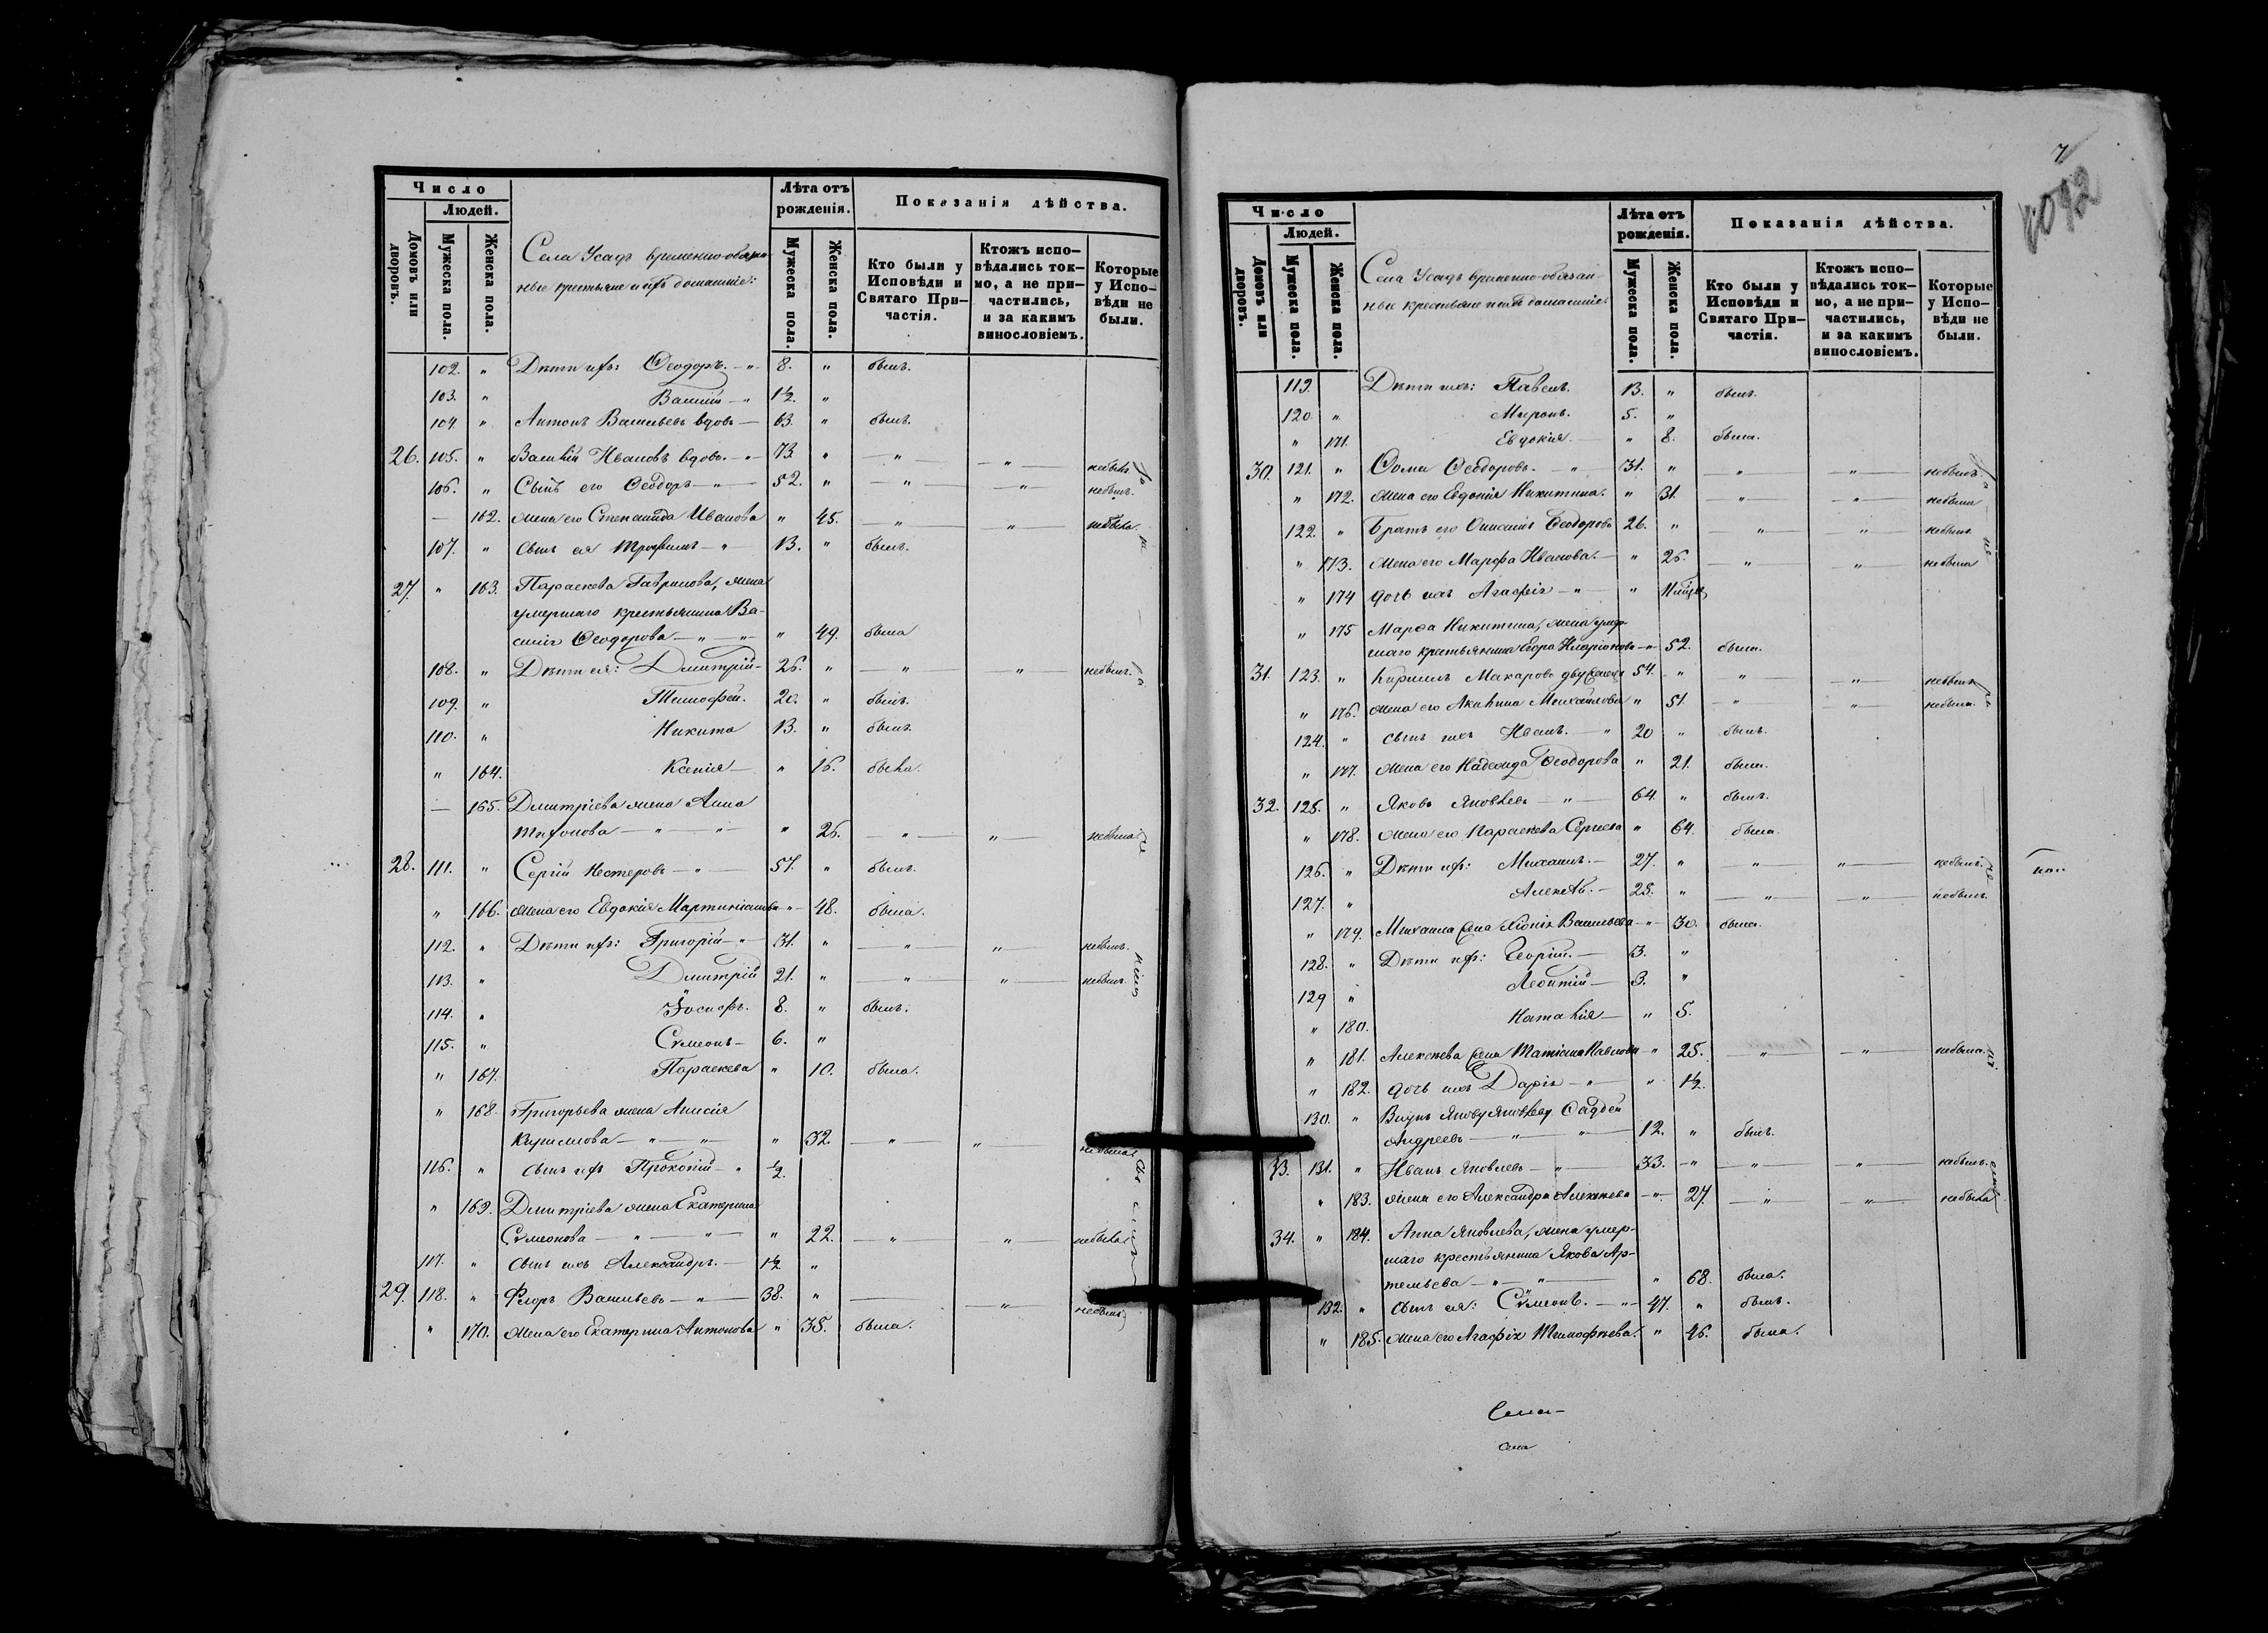 Число
Людей.
Домовъ или дворовъ.
Мужеска пола.
Женска пола.
Села Усадъ временно-обязан-
ные крестьяне и ихъ домашніе:
Лѣта отъ рожденія.
Мужеска пола.
Женска пола.
Показанія дѣйства.
Кто были у Исповѣди и Святаго При-частія.
Ктожъ испо-вѣдались ток-мо, а не при-частились, и за какимъ винословіемъ.
Которые у Испо-вѣди не были.
102. " Дѣти ихъ: Ѳеодоръ. 8. " былъ.
103. " Василій 1½. "
104. " Антонъ Васильевъ вдовъ 63. " былъ.
26. 105. " Василій Ивановъ вдовъ. 73 " " " небылъ
106. " Сынъ его Ѳеодоръ 52. " " " небылъ.
162. Жена его Степанида Иванова " 45. " " небыла.
107. " Сынъ ея Трофимъ 13. " былъ.
27. " 163. Параскева Гаврилова, жена
умершаго крестьянина Ва-
силія Ѳеодорова " 49. была
108. " Дѣти ея: Дмитрій 26. " " " небылъ.
109. " Тимофей. 20. " былъ.
110. " Никита 13. " былъ.
" 164. Ксенія " 16. была.
165. Дмитріева жена Анна
" 26. " " небыла
28. 111. " Сергій Нестеровъ 57. " былъ.
" 166. Жена его Евдокія Мартиніанова " 48. была.
112. " Дѣти ихъ: Григорій 31. " " " небылъ.
113. " Дмитрій 21. " " " небылъ.
114. " Іосифъ. 8. " былъ.
115. " Сѵмеонъ 6. "
" 167. Параскева " 10. была.
" 168. Григорьева жена Анисія
Кириллова " 32. " " небыла
116. " Сынъ ихъ Прокопій ½.
" 169. Дмитріева жена Екатерина
Сѵмеонова " 22. " " небыла
117. " Сынъ ихъ Александръ. 1½ "
29. 118. " Флоръ Васильевъ 38. " " небылъ
" 170. Жена его Екатерина Антонова " 35. была.
7
Число
Людей.
Домовъ или дворовъ.
Мужеска пола.
Женска пола.
Села Усадъ временно-обязан-
ные крестьяне и ихъ домашніе
Лѣта отъ рожденія.
Мужеска пола.
Женска пола.
Показанія дѣйства.
Кто были у Исповѣди и Святаго При-частія.
Ктожъ испо-вѣдались ток-мо, а не при-частились, и за какимъ винословіемъ.
Которые у Испо-вѣди не были.
119. Дѣти ихъ: Павелъ. 13. " былъ.
120. " Миронъ. 5. "
" 171. Евдокія. " 8. была.
30. 121. " Ѳома Ѳеодоровъ. 31. " " " небылъ
" 172. Жена его Евдокія Никитина. " 31. " " небыла
122. " Братъ его Онисимъ Ѳеодоровъ 26. " " " небылъ
" 173. Жена его Марѳа Иванова. " 26. " " небыла
" 174 дочь ихъ Агафія "
" 175 Марѳа Никитина, жена умер-
шаго крестьянина Егора Иларіонова 52. была.
31. 123. " Кириллъ Макаровъ 54. " " " небылъ
" 176. Жена его Акилина Михайлова " 51. " " небыла.
124. " сынъ ихъ Иванъ. 20 " былъ.
" 177. Жена его Надежда Ѳеодорова " 21. была.
32. 125. " Яковъ Яковлевъ 64. " былъ.
" 178. Жена его Параскева Сергіева " 64. была.
126. " Дѣти ихъ: Михаилъ. 27. " " " небылъ.
127. " Алексѣй. 25. " " " небылъ.
" 179. Михаила жена Хіонія Васильева 30. была.
128. " Дѣти ихъ: Георгій. 3. "
129 " Леонтій 3. "
" 180. Наталія " 5.
" 181. Алексѣева жена Татіана Павлова 25. " " небыла.
" 182. дочь ихъ Дарія " 1½.
130. " Внукъ Якову Яковлеву Фаддей
Андреевъ 12. " былъ.
33. 131. " Иванъ Яковлевъ 33. " " " небылъ.
" 183. Жена его Александра Алексѣева 27. " " небыла
34. " 184. Анна Яковлева, жена умер-
шаго крестьянина Якова Ар-
темьева " 68. была.
132. " Сынъ ея: Сѵмеонъ. 47. " былъ.
" 185. Жена его Агафія Тимофѣева. " 46. была.
Села